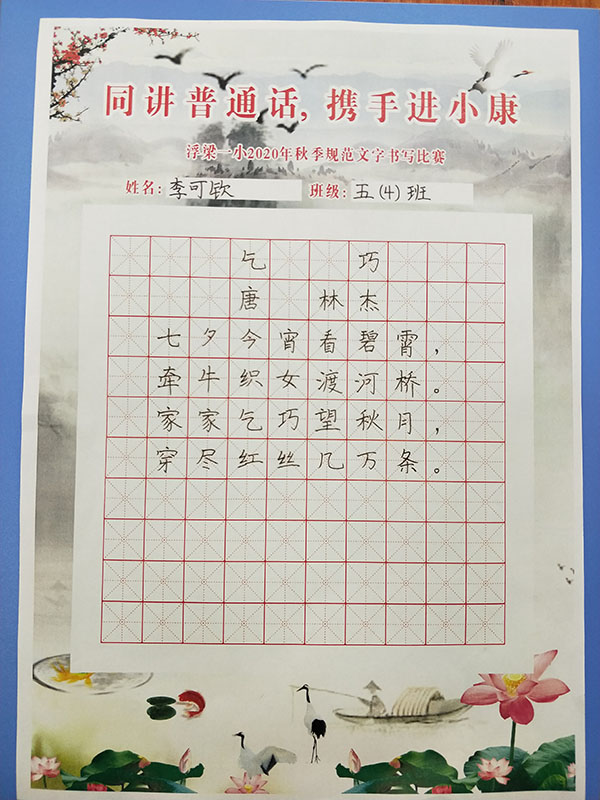 同讲普通话,携手进小康
浮梁一小2020年秋季规范文字书写比赛
姓名:李可钦 班级:五(4)班
乞巧
唐 林杰
七夕今宵看碧霄,
牵牛织女渡河桥。
家家乞巧望秋月,
穿尽红丝几万条。